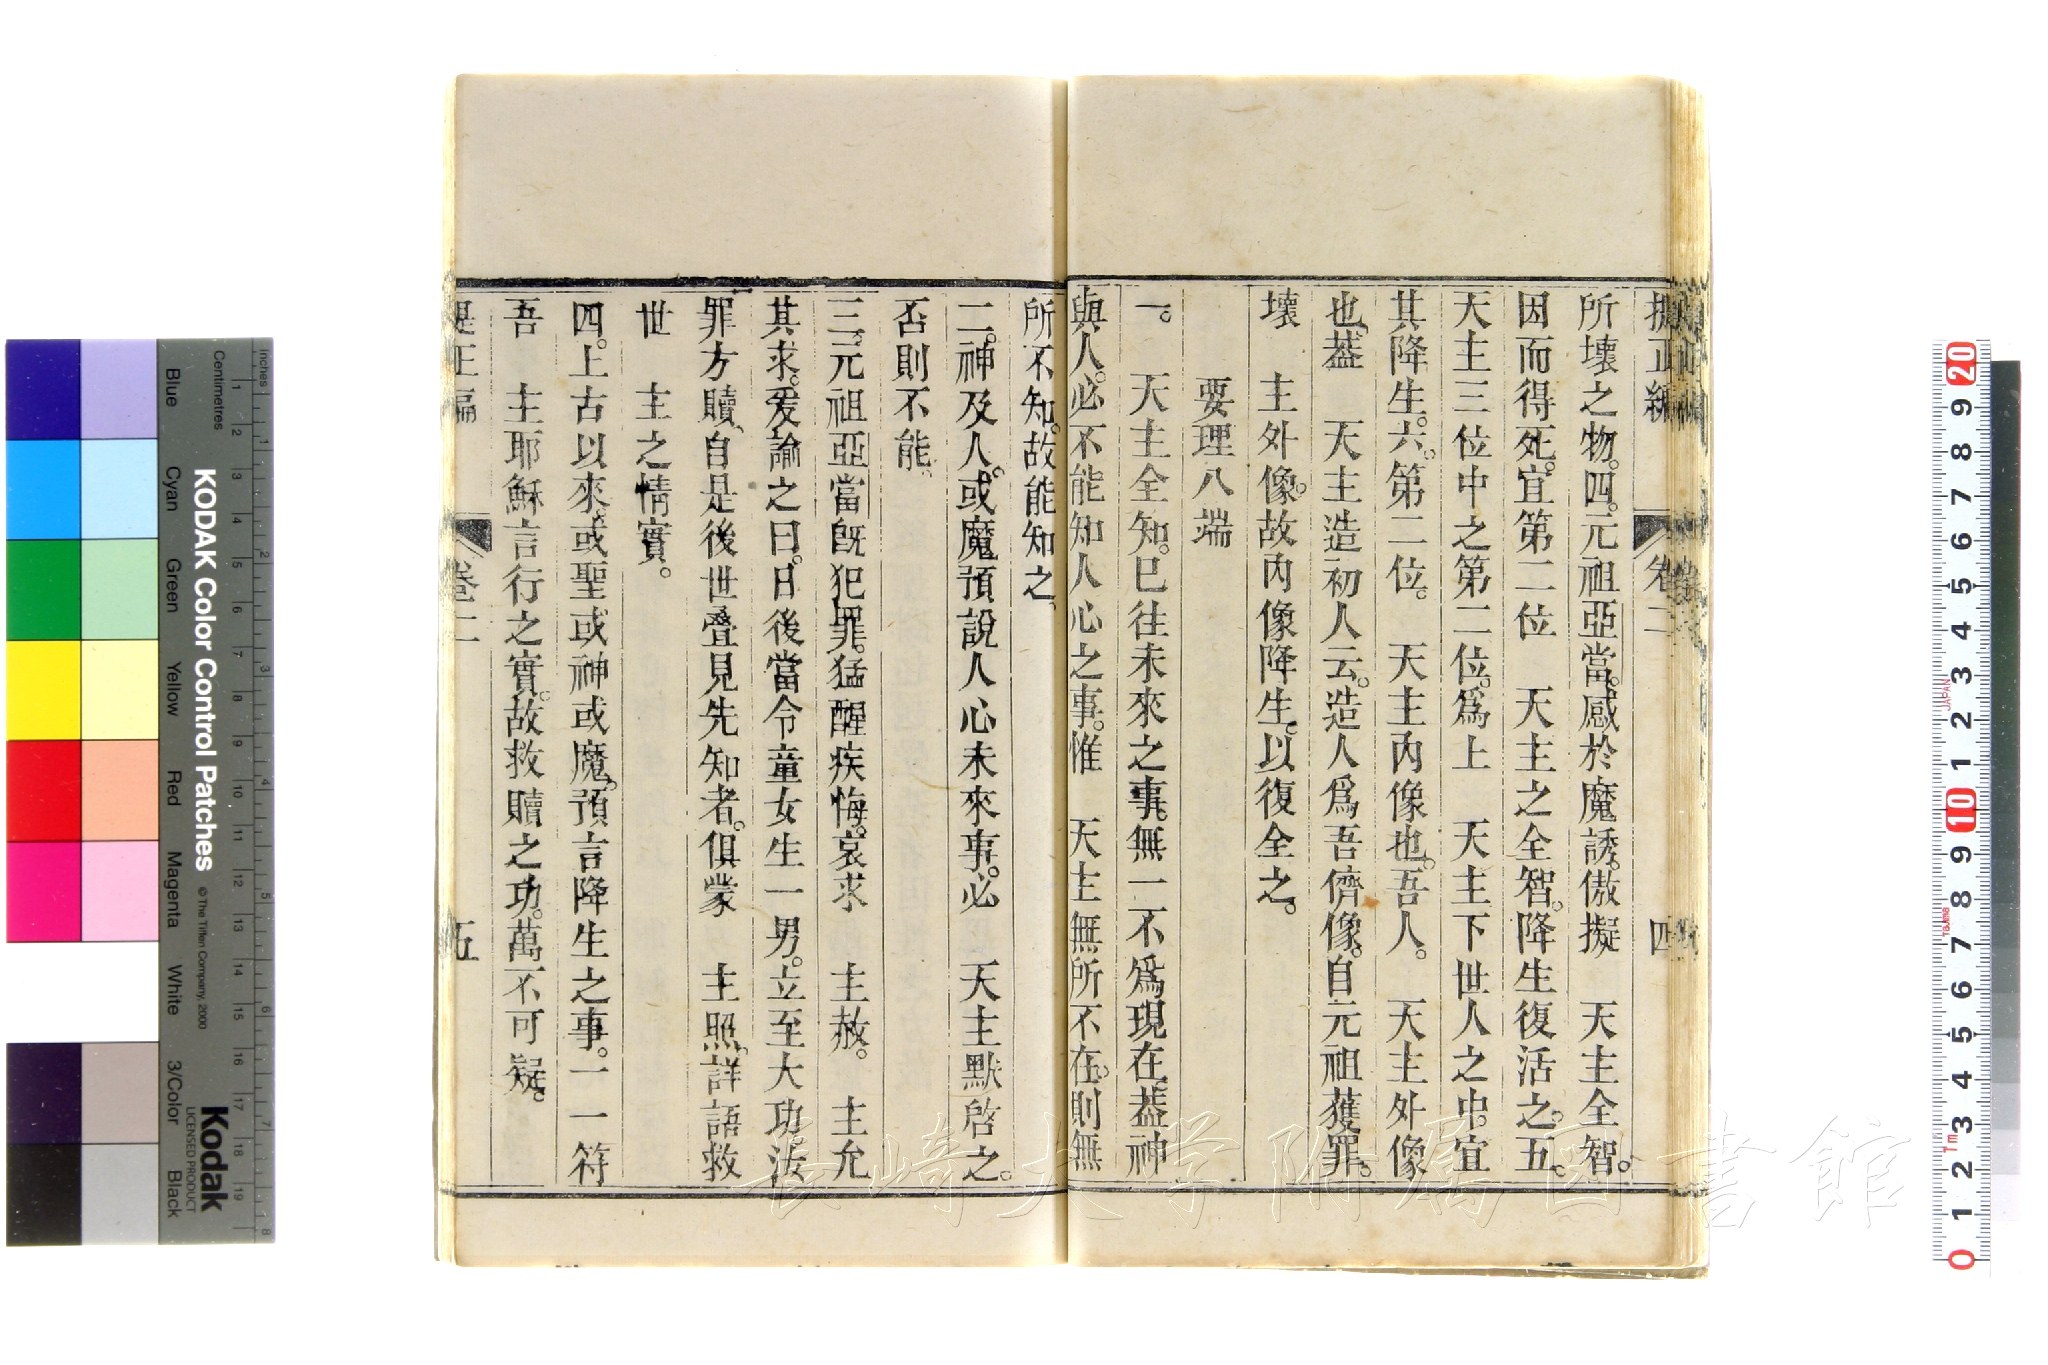 提正編 卷二 四
所壞之物。四。元祖亞當。感於魔誘。傲擬 天主全智。
因而得死。宜第二位 天主之全智。降生復活之。五。
天主三位中之第二位。爲上 天主下世人之中。宜
其降生。六。第二位。 天主內像也。吾人。 天主外像
也。葢 天主造初人云。造人爲吾儕像。自元祖獲罪。
壞 主外像。故內像降生。以復全之。
要理八端
一。 天主全知。已往未來之事。無一不爲現在。葢神
與人。必不能知人心之事。惟 天主無所不在。則無
所不知。故能知之。
二。神及人。或魔預說人心未來事。必 天主默啓之。
否則不能。
三。元祖亞當旣犯罪。猛醒疾悔。哀求 主赦。 主允
其求。爰諭之曰。日後當令童女生一男。立至大功。法
罪方贖。自是後世疊見先知者。俱蒙 主照。詳語救
世 主之情實。
四。上古以來。或聖或神或魔。預言降生之事。一一符
吾 主耶穌言行之實。故救贖之功。萬不可疑。
提正編 卷二 五
長崎大学附属図書館
KODAK Color Control Patches
© The Tiffen Company, 2000
Kodak
LICENSED PRODUCT
Blue Cyan Green Yellow Red Magenta White 3/Color Black
inches 1 2 3 4 5 6 7 8
Centimetres 1 2 3 4 5 6 7 8 9 10 11 12 13 14 15 16 17 18 19
20 9 8 7 6 5 4 3 2 1 10 9 8 7 6 5 4 3 2 1 0
JAPAN